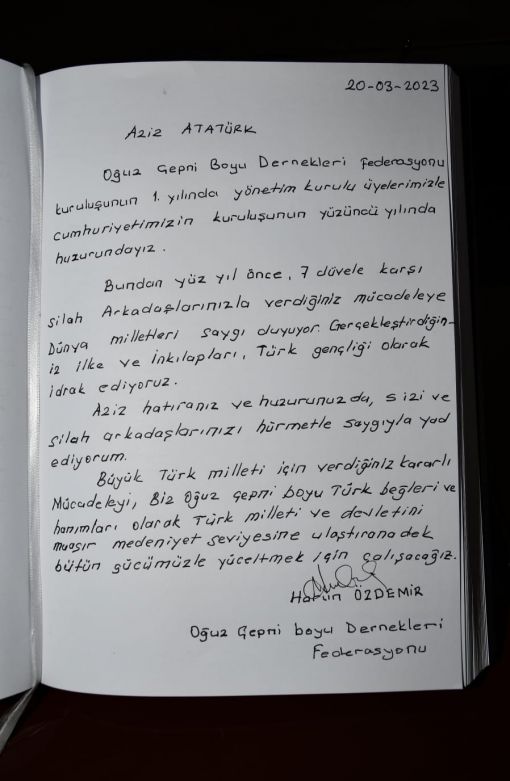 20-03-2023
Aziz ATATÜRK
Oğuz Çepni Boyu Dernekleri Federasyonu
kuruluşunun 1. yılında yönetim kurulu üyelerimizle
cumhuriyetimizin kuruluşunun yüzüncü yılında
huzurundayız.
Bundan yüz yıl önce, 7 düvele karşı
silah Arkadaşlarınızla verdiğiniz mücadeleye
Dünya milletleri saygı duyuyor. Gerçekleştirdiğin-
iz ilke ve İnkılapları, Türk gençliği olarak
idrak ediyoruz.
Aziz hatıranız ve huzurunuzda, sizi ve
silah arkadaşlarınızı hürmetle saygıyla yad
ediyorum.
Büyük Türk milleti için verdiğiniz kararlı
Mücadeleyi, Biz Oğuz çepni boyu Türk beğleri ve
hanımları olarak Türk milleti ve devletini
muasır medeniyet seviyesine ulaştırana dek
bütün gücümüzle yüceltmek için çalışacağız.
Harun ÖZDEMİR
Oğuz Çepni boyu Dernekleri
Federasyonu